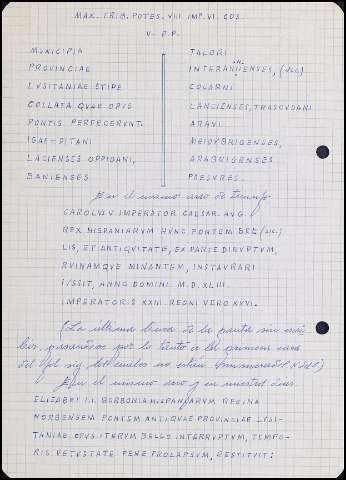 MAX. TRIB. POTES. VIII. IMP. VI. COS.
V. P.P.
MUNICIPIA
PROVINCIAE
LVSITANIAE STIPE
COLLATA QVAE OPVS
PONTIS PERFECERVNT.
IGAEDITANI
LACIENSES OPPIDANI,
BANIENSES
TALORI
INTERANNIENSES, (sic)
COLARNI
LANCIENSES, TRASCVDANI
ARAVI
MEIDVBRIGENSES,
ARABRIGENSES
PAESVRES.
En el mismo arco de triunfo
CAROLVS V. IMPERATOR CAESAR. AVG.
REX HISPANIARVM HVNC PONTEM BEL (sic.)
LIS, ET ANTIQVITATE, EX PARTE DIRVPTVM,
RVINAMQVE MINANTEM, INSTAVRARI
IVSSIT, ANNO DOMINI. M.D.XLIII.
IMPERATORIS XXIII. REGNI VERO XXVI.
(La última linea de la pauta sin
por lo tanto a la primera cara
del sig. no están
En el mismo arco y en nuestros dias.
ELISABET I.I. BORBONIA HISPANIARVM REGINA
NORBENSEM PONTEM ANTIQVAE PROVINCIAE LVSI-
TANIAE OPVS ITERVM BELLO INTERRVPTVM, TEMPO-
RIS VETVSTATE PENE PROLAPSVM, RESTITVIT: